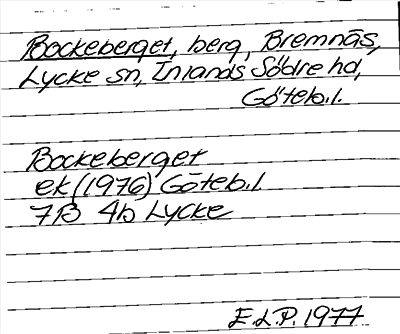 Bockeberget, berg, Bremnäs,
Lycke sn, Inlands Södre hd,
Göteb.l.
Bockeberget
ek (1976) Göteb.l
7B 4b Lycke
E.L.P. 1977